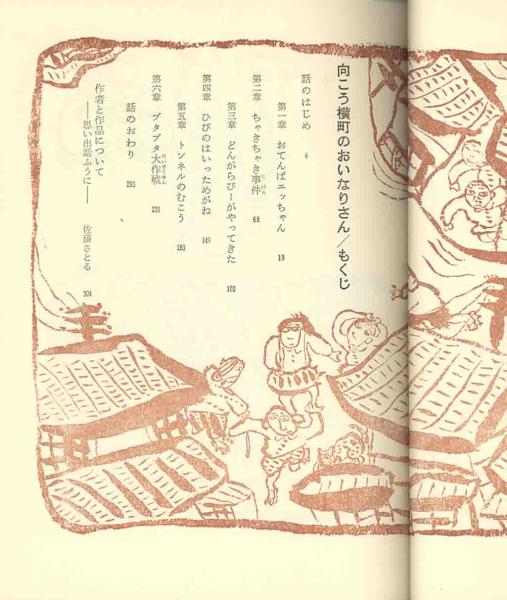 向こう横町のおいなりさん／もくじ
話のはじめ 6
第一章 おてんばエッちゃん 19
第二章 ちゃきちゃき事件 68
第三章 どんがらぴーがやってきた 103
第四章 ひびのはいっためがね 149
第五章 トンネルのむこう 183
第六章 ブタブタ大作戦 231
話のおわり 293
作者と作品について
——思い出話ふうに—— 佐藤さとる 304